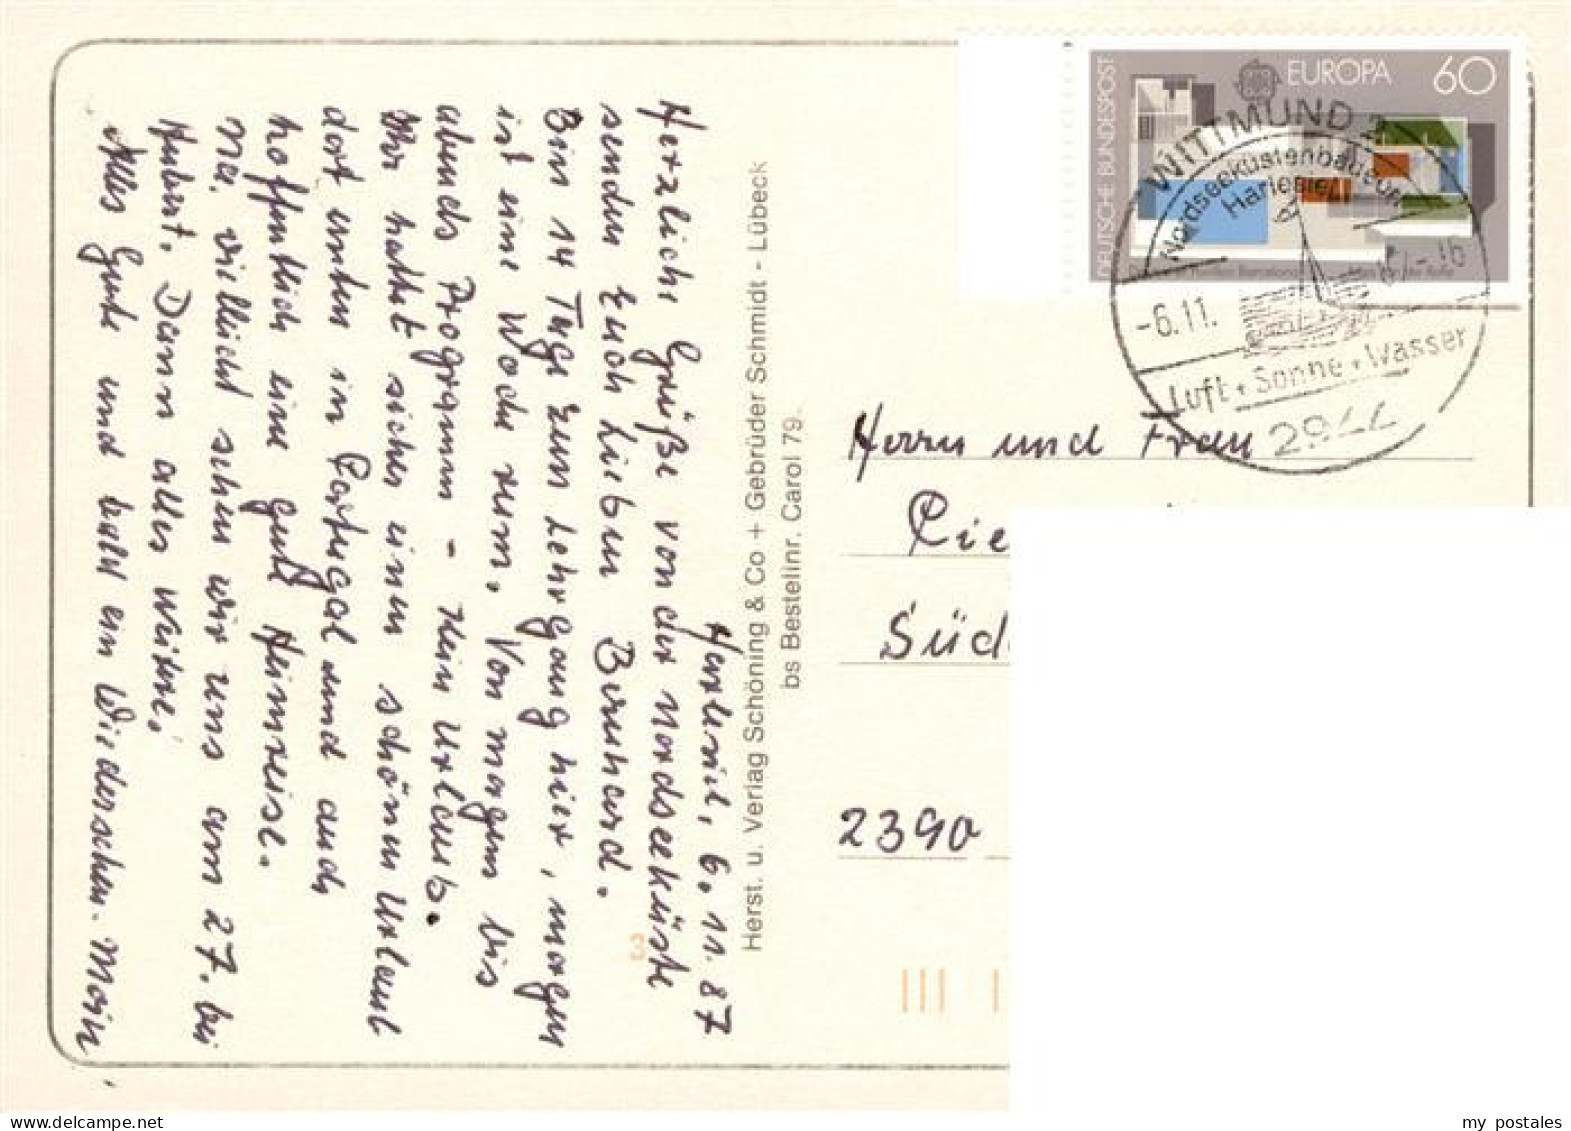 Harlesiel, 6.11.87
Herzliche Grüße von der Nordseeküste
senden Euch Lieben Bernhard.
Bin 14 Tage zum Lehrgang hier, morgen
ist eine Woche rum. Von morgens bis
abends Programm - kein Urlaub.
Ihr hattet sicher einen schönen Urlaub
dort unten in Portugal und auch
hoffentlich eine gute Heimreise.
Na, vielleicht sehen wir uns am 27. bei
Hubert. Dann alles weitere.
Alles Gute und bald ein Wiedersehen.
Herst. u. Verlag Schöning & Co + Gebrüder Schmidt - Lübeck
bs Bestellnr. Carol 79.
DEUTSCHE BUNDESPOST
EUROPA 60
WITTMUND 2
Nordseeküstenbadeort
Harlesiel
-6.11. -16
Luft + Sonne + Wasser
2944
Herrn und Frau
Rie
Süd
2390
my postales